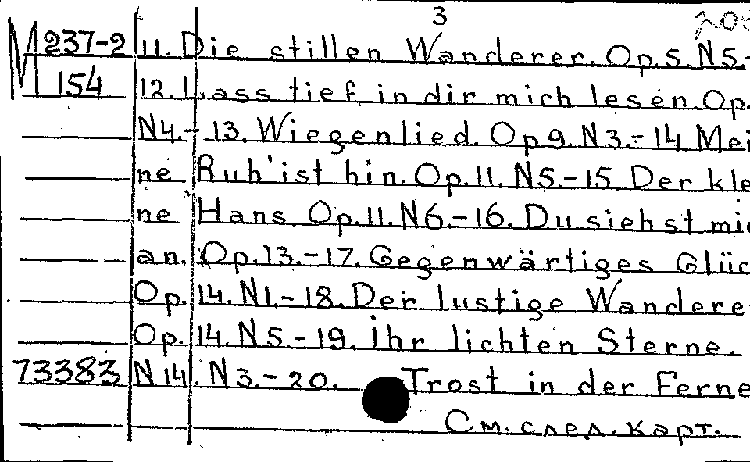 3
M 237-2 11. Die stillen Wanderer. Op.5. N5.-
154 12. Lass tief in dir mich lesen. Op.
N4.- 13. Wiegenlied. Op 9. N3.- 14 Mei
ne Ruh' ist hin. Op.11. N5.-15. Der kle
ne Hans Op.11. N6.-16. Du siehst mi
an. Op.13.-17. Gegenwärtiges Glüc
Op. 14. N1.-18. Der lustige Wandere
Op. 14. N5.-19. Ihr lichten Sterne.
73383 N 14. N3.-20. Trost in der Ferne
См. след. карт.